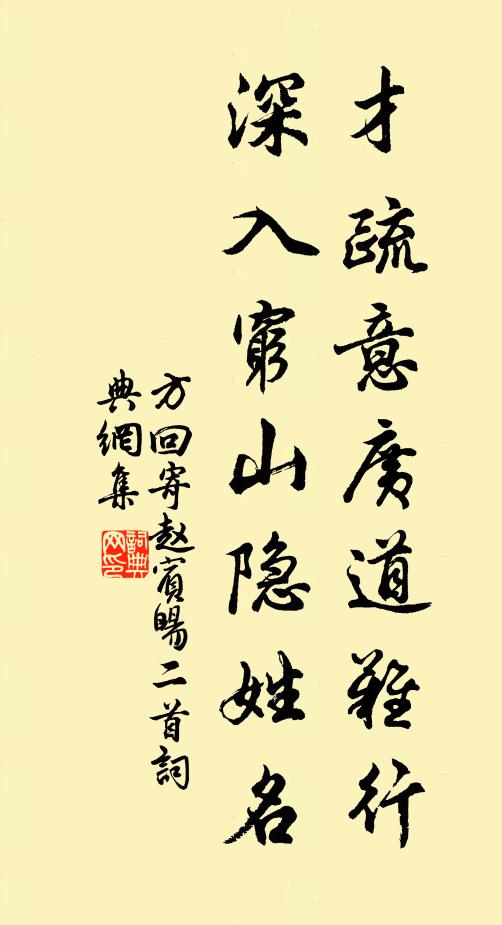 才疏意廣道難行
深入窮山隐姓名
方回寄赵賓暘二首詞
典網集
詞典
网印